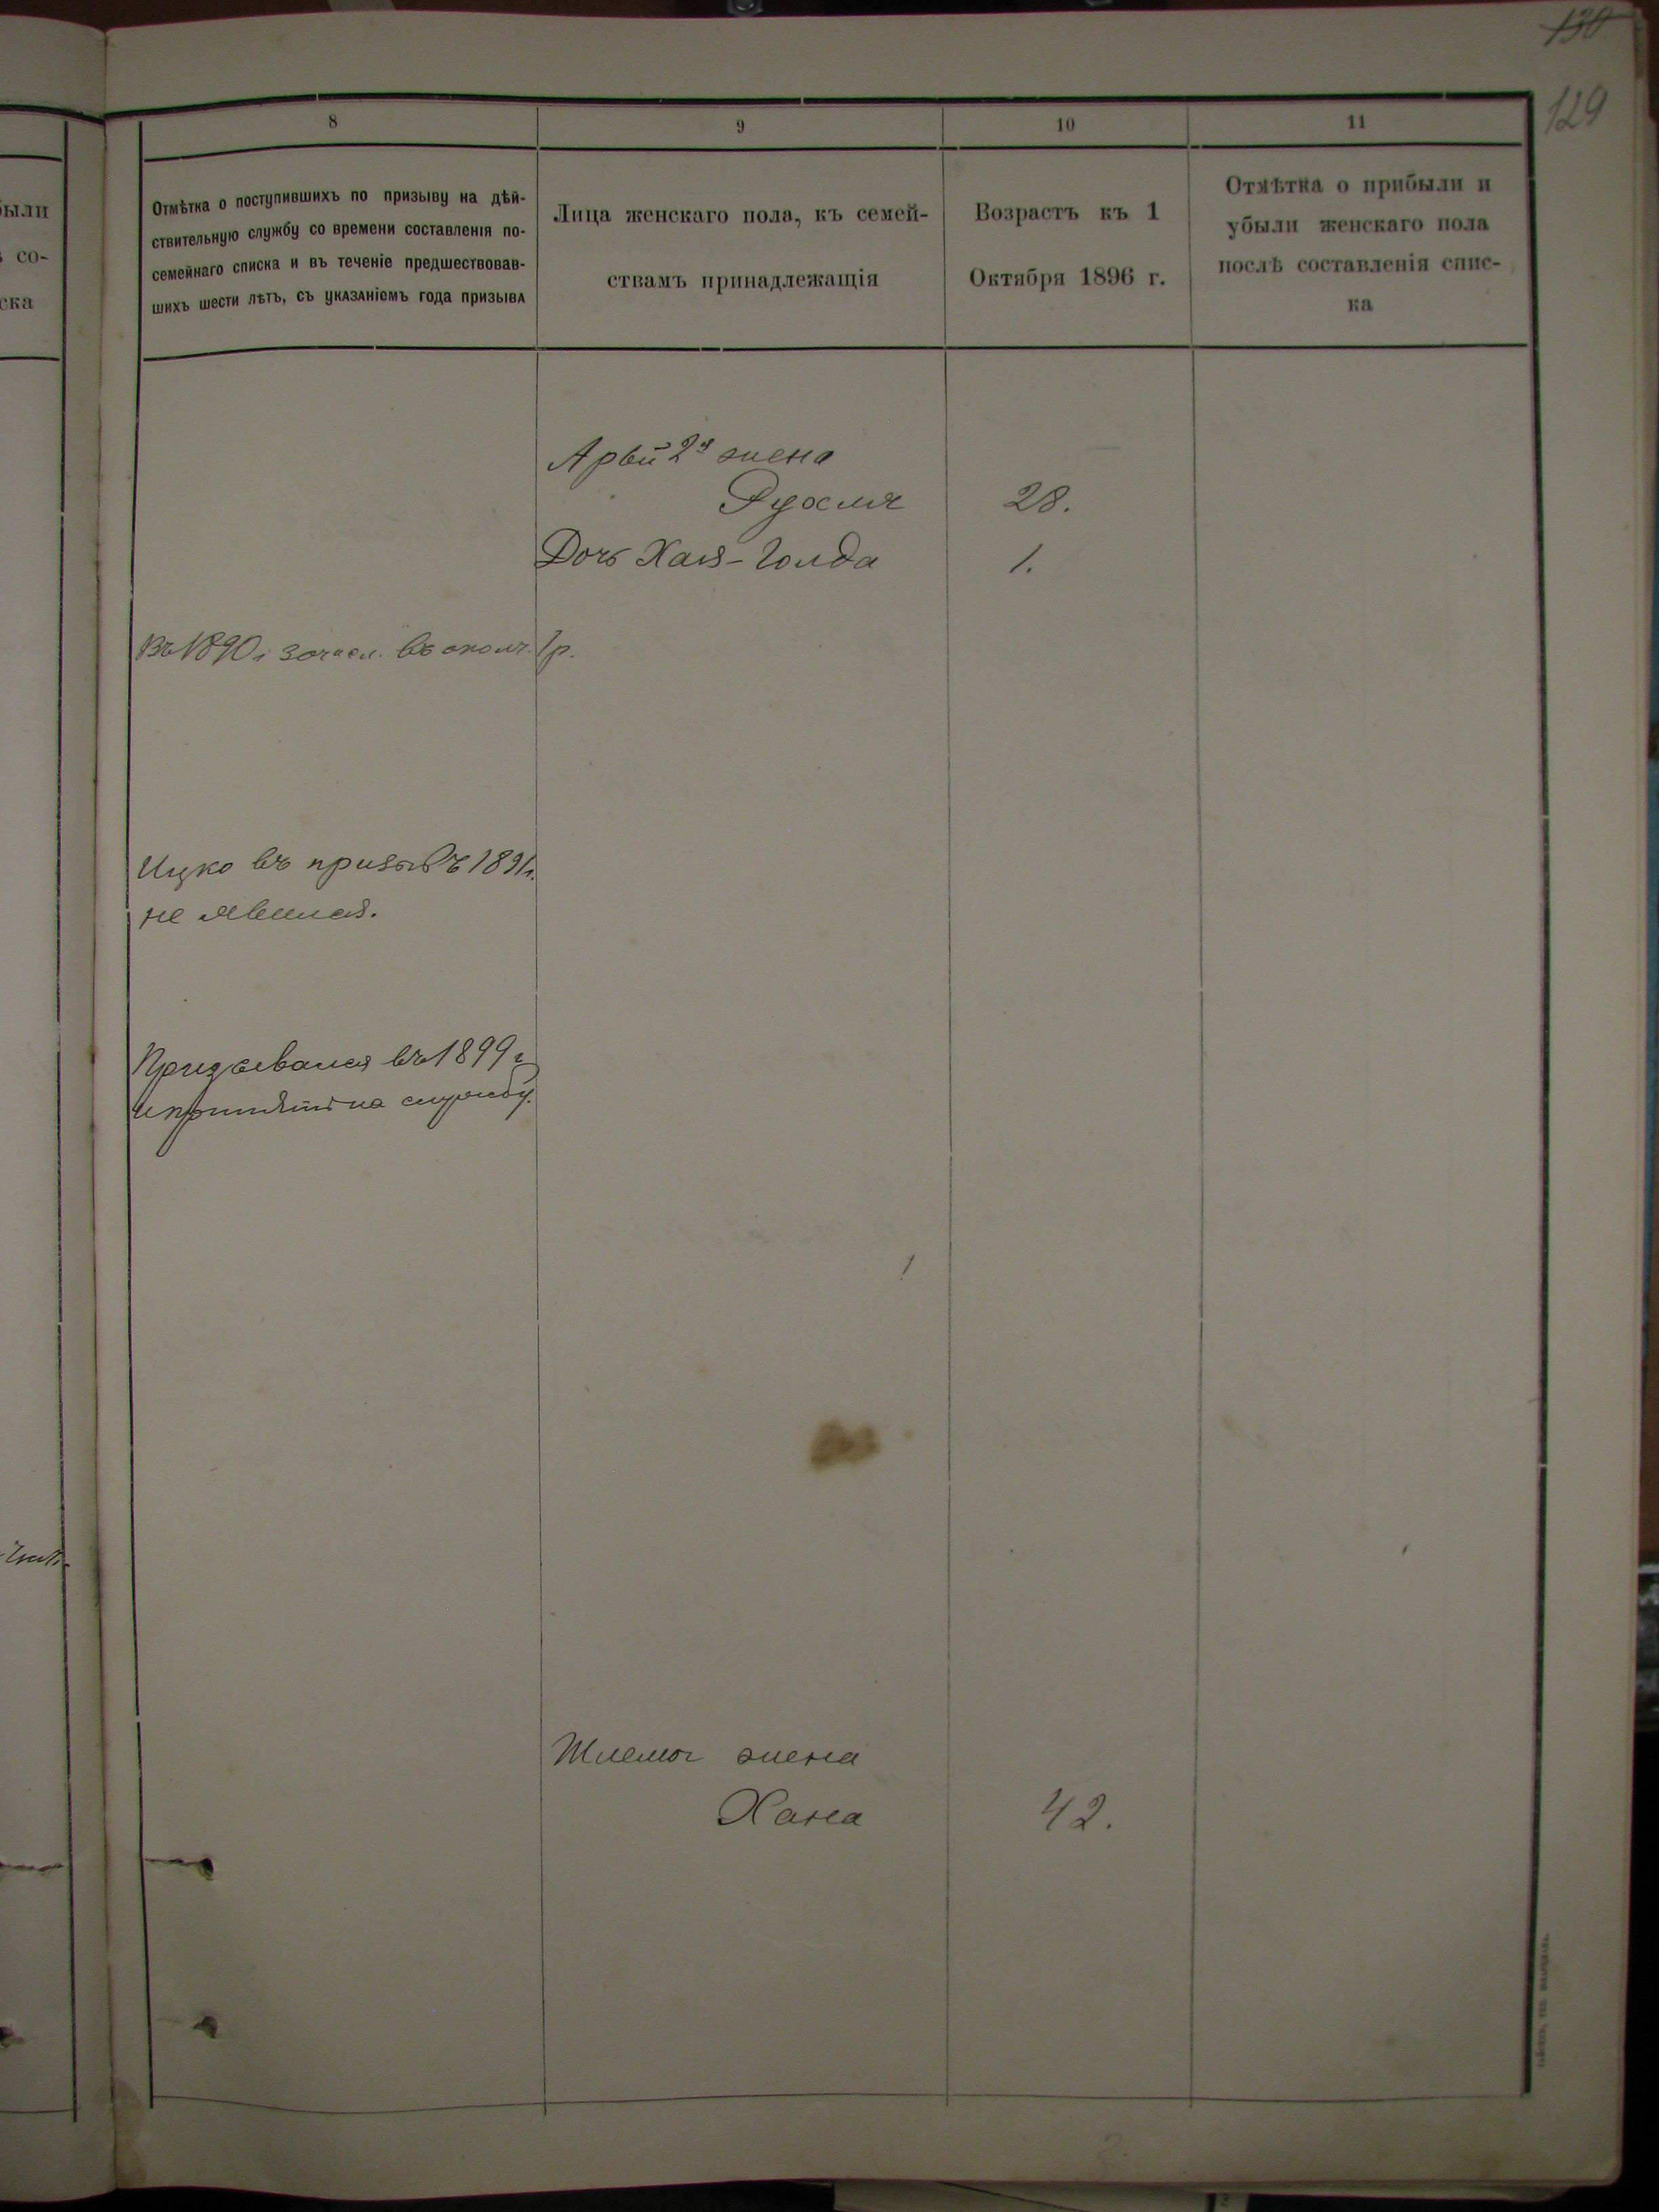 130
129
8
9
10
11
Отмѣтка о поступившихъ по призыву на дѣй-
ствительную службу со времени составленія по-
семейнаго списка и въ теченіе предшествовав-
шихъ шести лѣтъ, съ указаніемъ года призыва
Лица женскаго пола, къ семей-
ствамъ принадлежащія
Возрастъ къ 1
Октября 1896 г.
Отмѣтка о прибыли и
убыли женскаго пола
послѣ составленія спис-
ка
были
со-
ска
Арьи 2я жена
Рухля 28.
Дочь Хая-Голда 1.
Въ 1890 г зачисл. въ ополч. 1 р.
Ицко въ призывъ 1891 г.
не явился.
Призывался въ 1899 г
и принятъ на службу.
Шлемы жена
Хана 42.